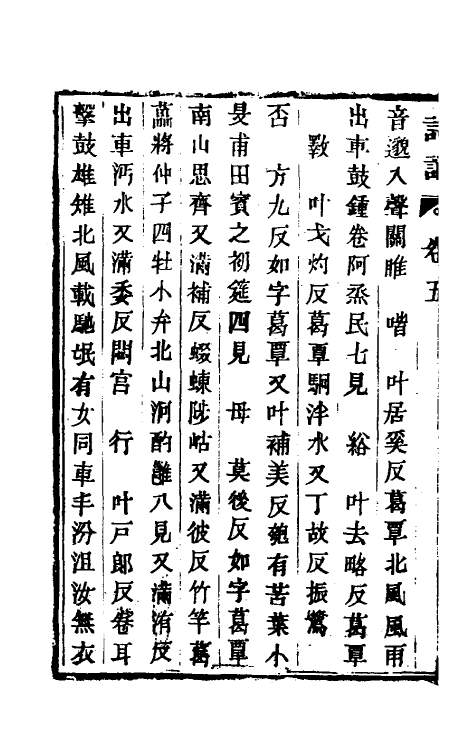 卷五
音邈入聲關雎　喈　叶居奚反葛覃北風風雨
出車鼓鍾卷阿烝民七見　綌　叶去略反葛覃
斁　叶弋灼反葛覃駉泮水又丁故反振鷺
否　方九反如字葛覃又叶補美反匏有苦葉小
旻甫田賓之初筵四見　母　莫後反如字葛覃
南山思齊又滿補反蝃蝀陟岵又滿彼反竹竿葛
藟將仲子四牡小弁北山泂酌雝八見又滿洧反
出車沔水又滿委反閟宫　行　叶戸郎反卷耳
擊鼓雄雉北風載馳氓有女同車丰汾沮汝無衣